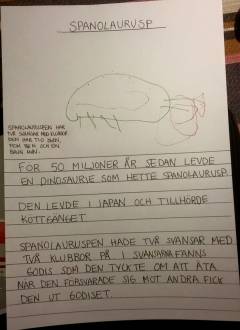 SPANOLAURUSP
SPANOLAURUSPEN HAR
TVÅ SVANSAR MED KLUBBOR
DEN HAR TIO ÖGON,
FEM BEN OCH EN
BRUN MUN.
FÖR 50 MILJONER ÅR SEDAN LEVDE
EN DINOSAURIE SOM HETTE SPANOLAURUSP.
DEN LEVDE I JAPAN OCH TILLHÖRDE
KÖTTGÄNGET.
SPANOLAURUSPEN HADE TVÅ SVANSAR MED
TVÅ KLUBBOR PÅ I SVANSARNA FANNS
GODIS SOM DEN TYCKTE OM ATT ÄTA
NÄR DEN FÖRSVARADE SIG MOT ANDRA FICK
DEN UT GODISET.